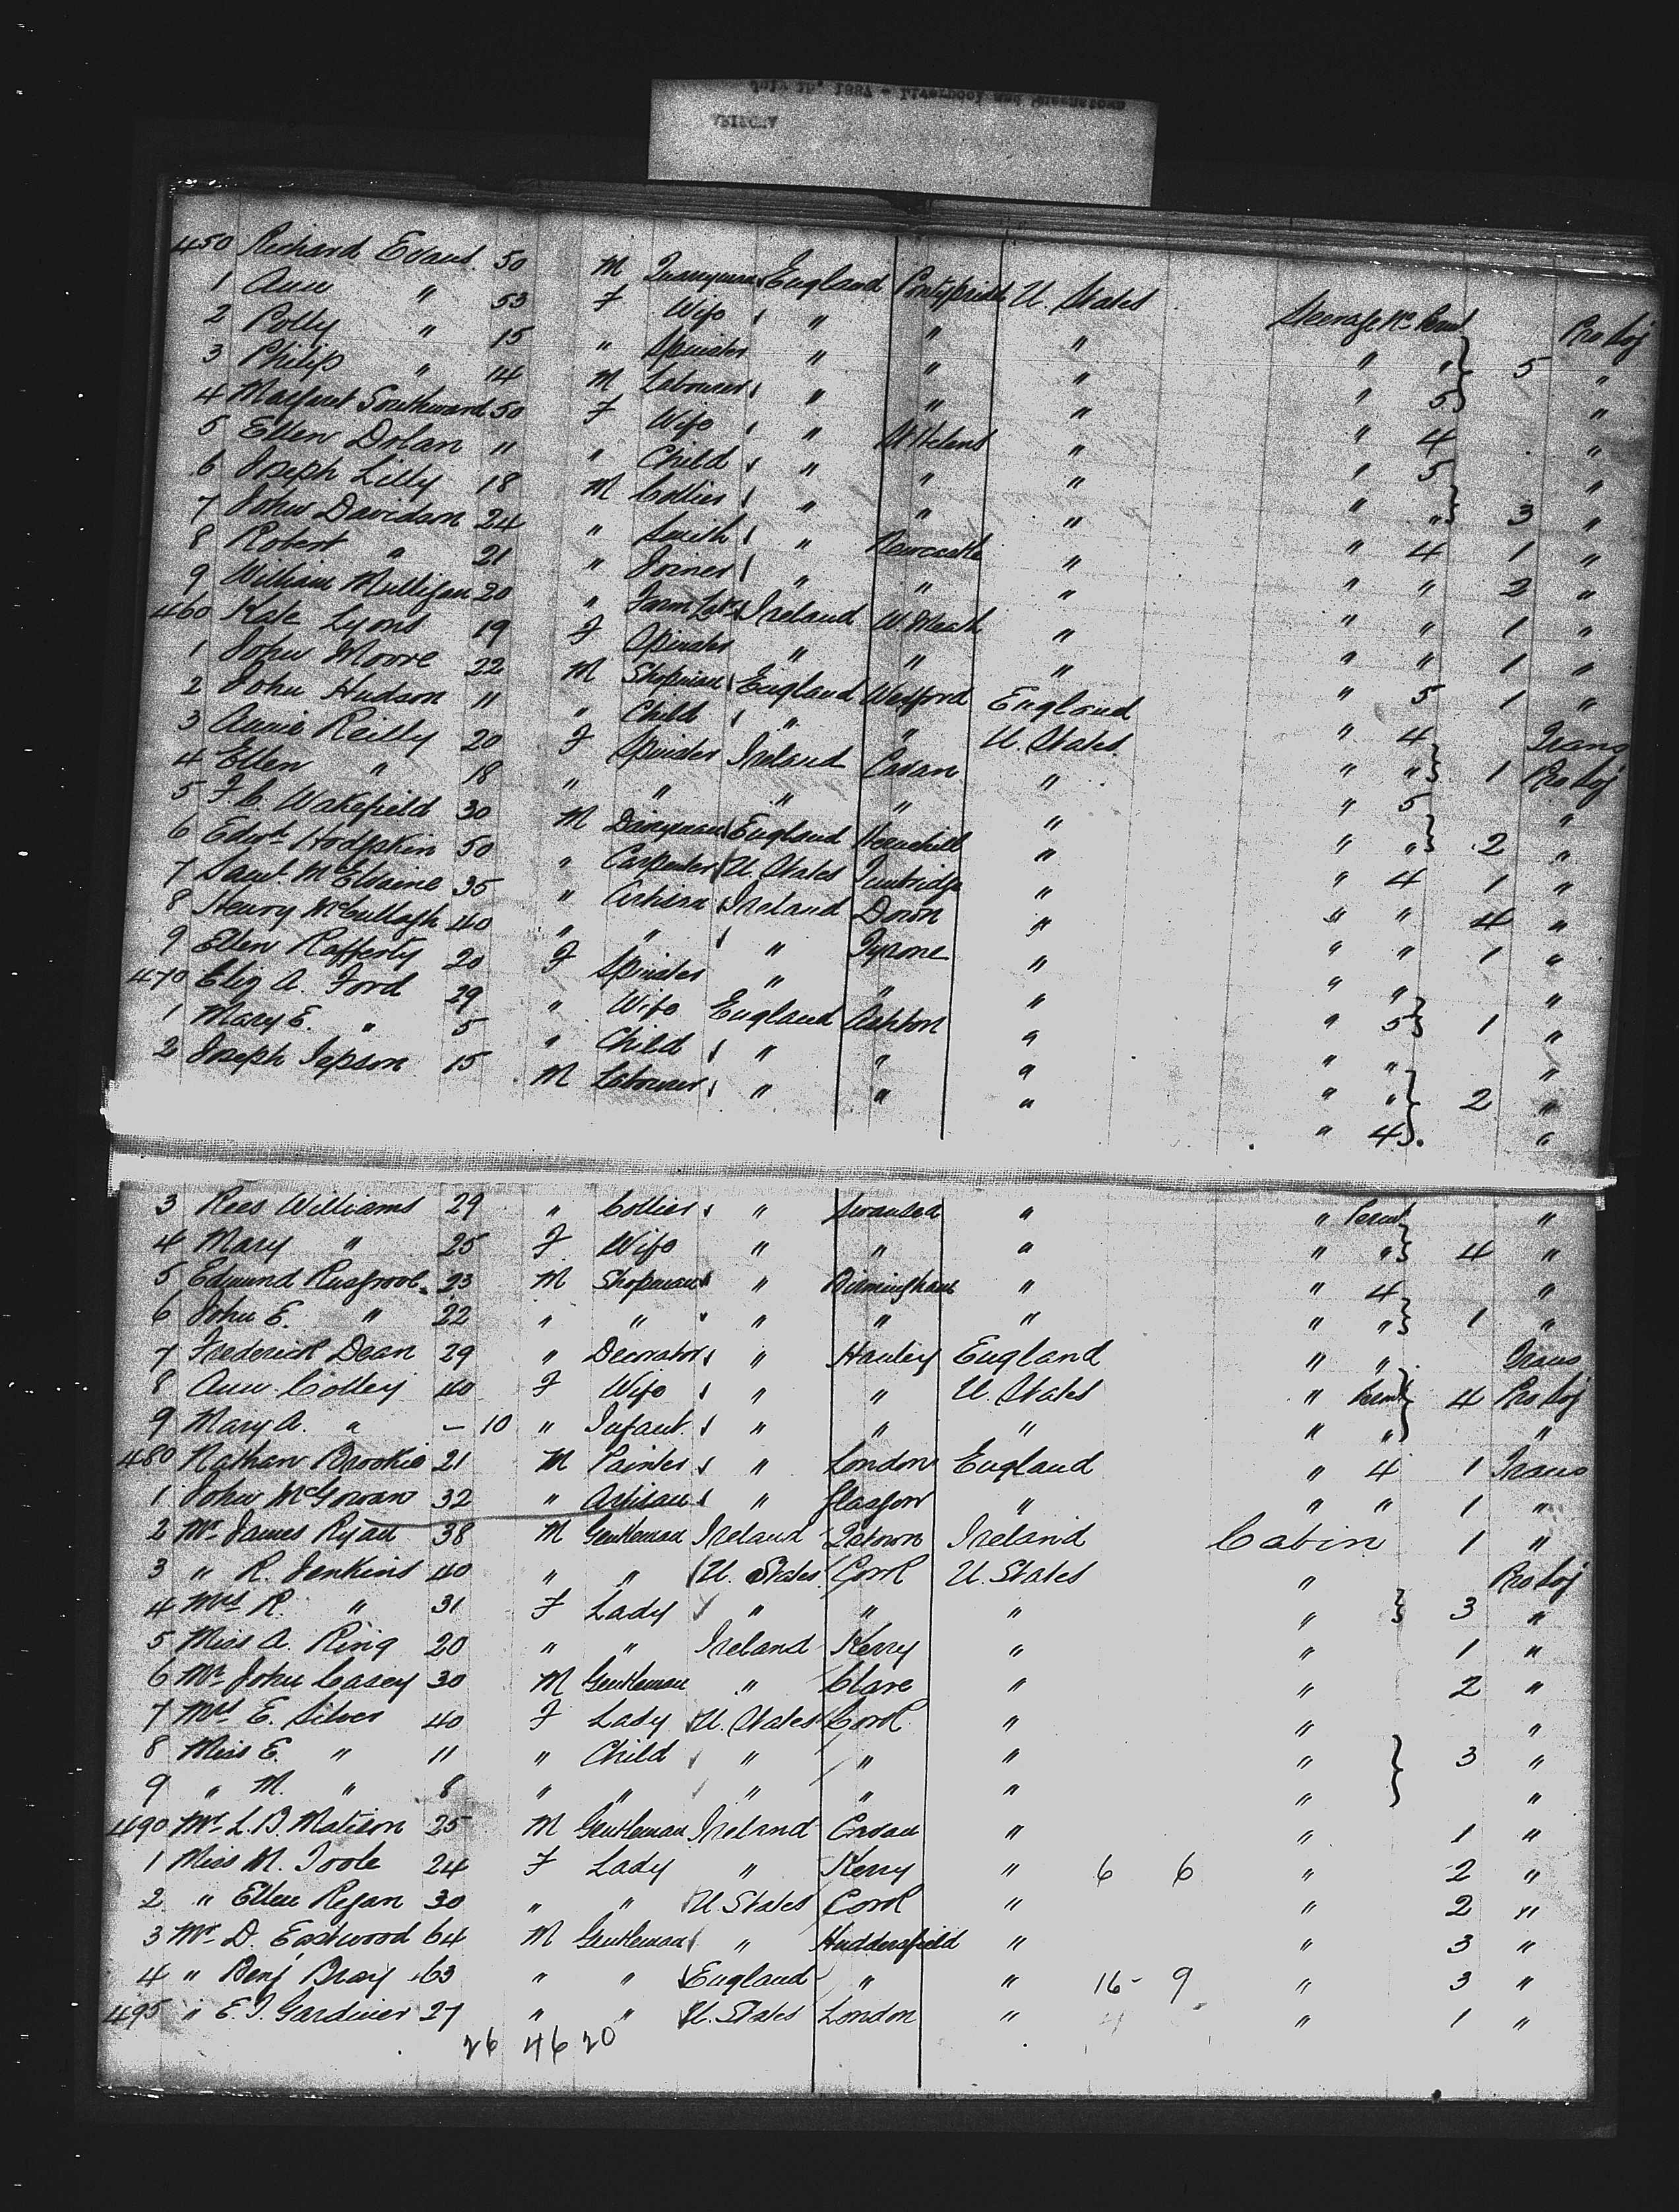 450 Richard Evans 50 M Quarryman England Pontypridd U. States Steerage No Perm Pro Soj
1 Ann " 53 F Wife " " " " "
2 Polly " 15 " Spinster " " " " 5 5 "
3 Philip " 14 M Labourer " " " " 4 "
4 Margaret Southward 50 F Wife " St Helens " " 5 "
5 Ellen Dolan 11 " Child " " " " " 3 "
6 Joseph Lilly 18 M Collier " " " " 4 1 "
7 John Davidson 24 " Smith " Newcastle " " " 2 "
8 Robert " 21 " Joiner " " " " " 1 "
9 William Mulligan 20 " Farm Labr Ireland W Meath " " " 1 "
460 Kate Lyons 19 F Spinster " " " " 5 1 "
1 John Moore 22 M Shopman England Wexford England " 4 Trans
2 John Hudson 11 " Child " " U. States " " 1 Pro Soj
3 Annie Reilly 20 F Spinster Ireland Cavan " " 5 "
4 Ellen " 18 " " " " " " " 2 "
5 F. C. Wakefield 30 M Dairyman England Hernehill " " 4 1 "
6 Edwd Hodgskin 50 " Carpenter U. States Tunbridge " " " 4 "
7 Saml. McElvaine 35 " Artisan Ireland Down " " " 1 "
8 Henry McCullagh 40 " " " Tyrone " " " "
9 Ellen Rafferty 20 F Spinster " " " " 5 1 "
470 Eliz A. Ford 29 " Wife England Ashton " " " "
1 Mary E. " 5 " Child " " " " " 2 "
2 Joseph Jepson 15 M Labourer " " " " 4 "
3 Rees Williams 29 " Collier " Swansea " " Perm "
4 Mary " 25 F Wife " " " " " 4 "
5 Edmund 23 M Shopman " Birmingham " " 4 "
6 John E. " 22 " " " " " " " 1 "
7 Frederick Dean 29 " Decorator " Hanley England " " Trans
8 Ann Colley 40 F Wife " " U. States " Perm 4 Pro Soj
9 Mary A. " – 10 " Infant. " " " " " "
480 Nathan Brookie 21 M Painter " London England " 4 1 Trans
1 John McGowan 32 " Artisan " Glasgow " " " 1 "
2 Mr. James Ryan 38 M Gentleman Ireland Qstown Ireland Cabin 1 "
3 " R. Jenkins 40 " " U. States Cork U. States " Pro Soj
4 Mrs R. " 31 F Lady " " " " 3 "
5 Miss A. Ring 20 " " Ireland Kerry " " 1 "
6 Mr John Casey 30 M Gentleman " Clare " " 2 "
7 Mrs E. Silver 40 F Lady U. States Cork " " "
8 Miss E. " 11 " Child " " " " 3 "
9 " M. " 8 " " " " " " "
490 Mr. L. B. Matison 25 M Gentleman Ireland Cavan " " 1 "
1 Miss M. Toole 24 F Lady " Kerry " 6 6 " 2 "
2 " Ellen Regan 30 " " U. States Cork " " 2 "
3 Mr. D. Eastwood 64 M Gentleman " Huddersfield " " 3 "
4 " Benj Bray 63 " " England " " 16 - 9 " 3 "
495 " E. J. Gardiner 27 " " U. States London " 4 " 1 "
26 46 20